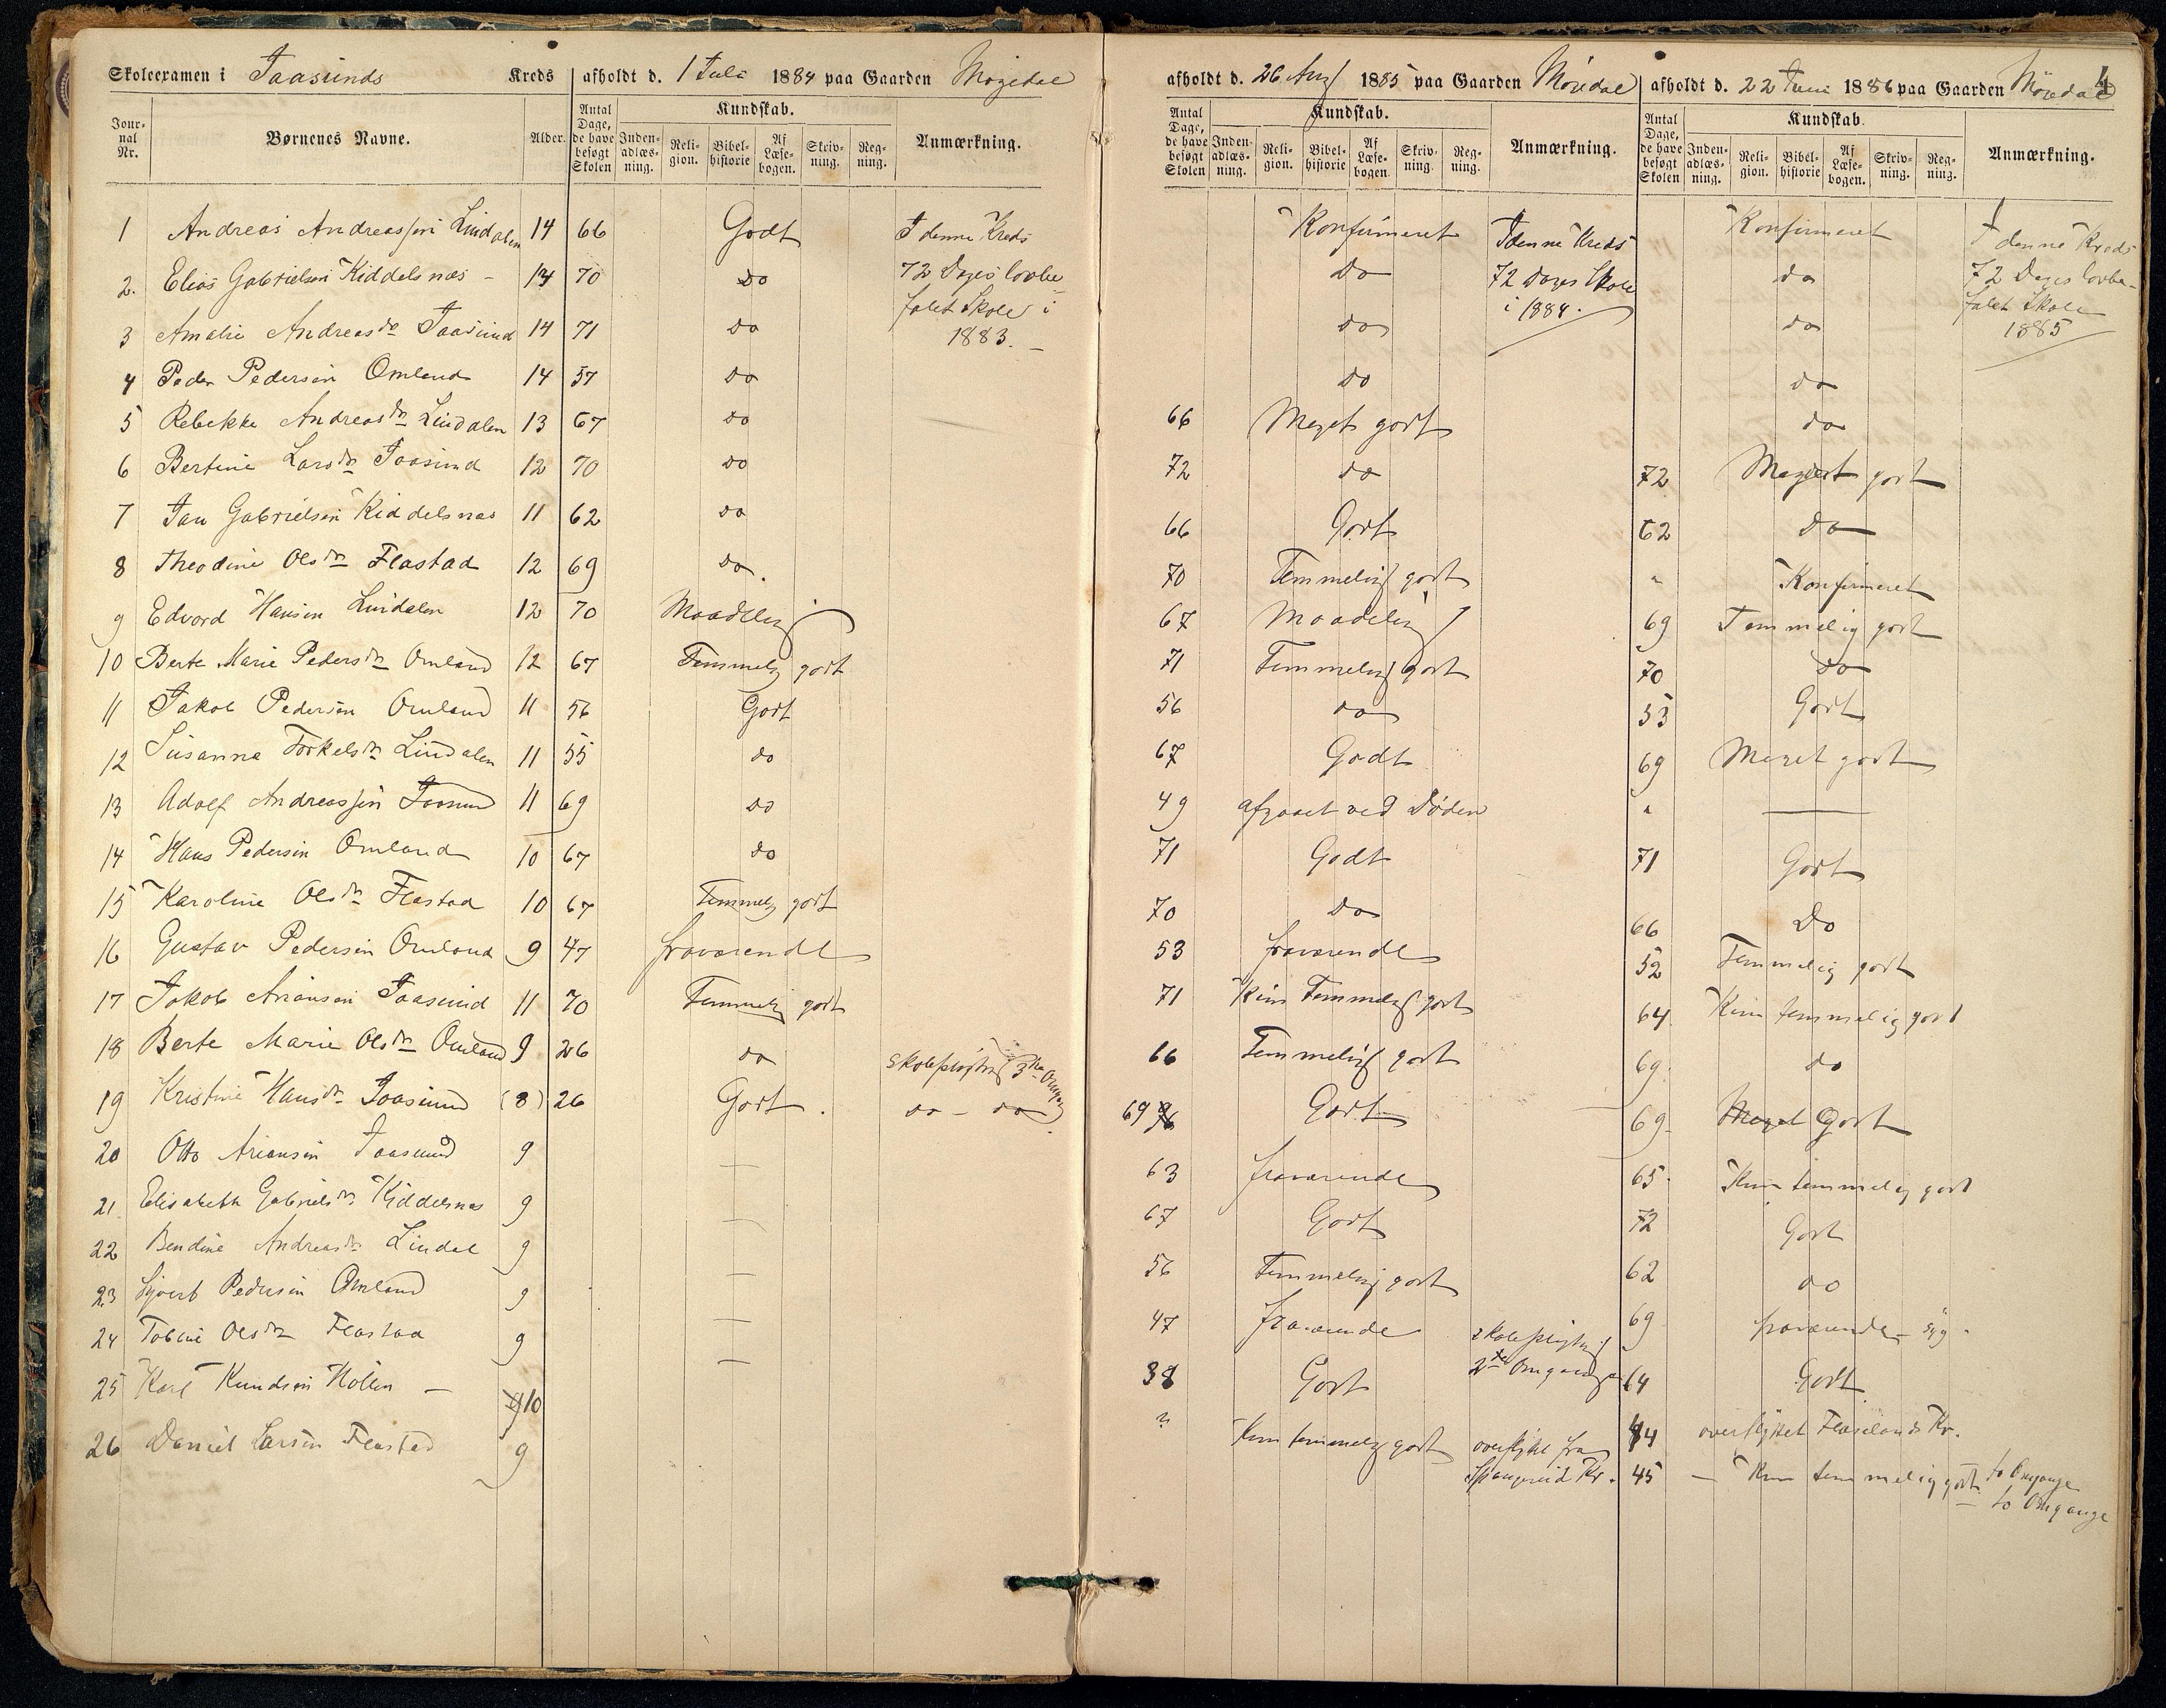 Skoleexamen i Taasunds Kreds afholdt d. 1 Juli 1884 paa Gaarden Mögedal
Jour-nal Nr. Børnenes Navne. Alder. Antal Dage, de have besøgt Skolen Kundskab. Inden-adlæs-ning. Reli-gion. Bibel-historie Af Læse-bogen. Skriv-ning. Reg-ning. Anmærkning.
1 Andreas Andreassen Lindalen 14 66 Godt I denne Kreds
2. Elias Gabrielsen Kiddelsnæs - 14 70 do 72 Dages lovbe-
falet Skole i
3 Amalie Andreasdr Taasund 14 71 do 1883. -
4 Peder Pedersen Omland 14 57 do
5 Rebekke Andreasdr Lindalen 13 67 do
6 Bertine Larsdr Taasund 12 70 do
7 Jan Gabrielsen Kiddelsnæs 11 62 do
8 Theodine Olsdr Flastad 12 69 do.
9 Edvard Hansen Lindalen 12 70 Maadelig
10 Berte Marie Pedersdr Omland 12 67 Temmelig godt
11 Jakob Pedersen Omland 11 56 Godt
12 Susanne Torkelsdr Lindalen 11 55 do
13 Adolf Andreassen Taasund 11 69 do
14 Hans Pedersen Omland 10 67 do
15 Karoline Olsdr Flastad 10 67 Temmelig godt
16 Gustav Pedersen Omland 9 47 fraværende
17 Jakob Ariansen Taasund 11 70 Temmelig godt
18 Berte Marie Olsdr Omland 9 26 do Skolepligtig 3die Omgang
19 Kristine Hansdr Taasund (8) 26 Godt. do - do
20 Otto Ariansen Taasund 9 —
21. Elisabeth Gabrielsdr Kiddelsnæs 9 —
22 Bendine Andreasdr Lindal 9 —
23 Sjvert Pedersen Omland 9 —
24 Tobine Olsdr Flastad 9 —
25 Karl Knudsen Hollen — 10
26 Daniel Larsen Flastad 9
afholdt d. 26 Aug 1885 paa Gaarden Möjedal
Antal Dage, de have besøgt Skolen Kundskab. Inden-adlæs-ning. Reli-gion. Bibel-historie Af Læse-bogen. Skriv-ning. Reg-ning. Anmærkning.
Konfirmeret I denne Kreds
do 72 Dages Skole
do i 1884.
do
66 Meget godt
72 do
66 Godt
70 Temmelig godt
67 Maadelig
71 Temmelig godt
56 do
67 Godt
49 afgaaet ved Døden
71 Godt
70 do
53 fraværende
71 Kun Temmelig godt
66 Temmelig godt
69 Godt
63 fraværende
67 Godt
56 Temmelig godt
47 fraværende skolepligtig
38 Godt 2den Omgang
" Kun temmelig godt overflyttet fra
Spangereid Kr.
afholdt d. 22 Juni 1886 paa Gaarden Möjedal
4
Antal Dage, de have besøgt Skolen Kundskab. Inden-adlæs-ning. Reli-gion. Bibel-historie Af Læse-bogen. Skriv-ning. Reg-ning. Anmærkning.
Konfirmeret I denne Kreds
do 72 Dages lovbe-
falet Skole
do 1885
do
do
72 Meget godt
62 do
" Konfirmeret
69 Temmelig godt
70 do
53 Godt
69 Meget godt
" —
71 Godt
66 Do
52 Temmelig godt
64 Kun temmelig godt
69. do
69. Meget Godt
65. Kun temmelig godt
72 Godt
62 do
69 fraværende - syg.
64 Godt
44 overflyttet Flaselands Kr.
45 — Kun temmelig godt. to Omgange
— to Omgange